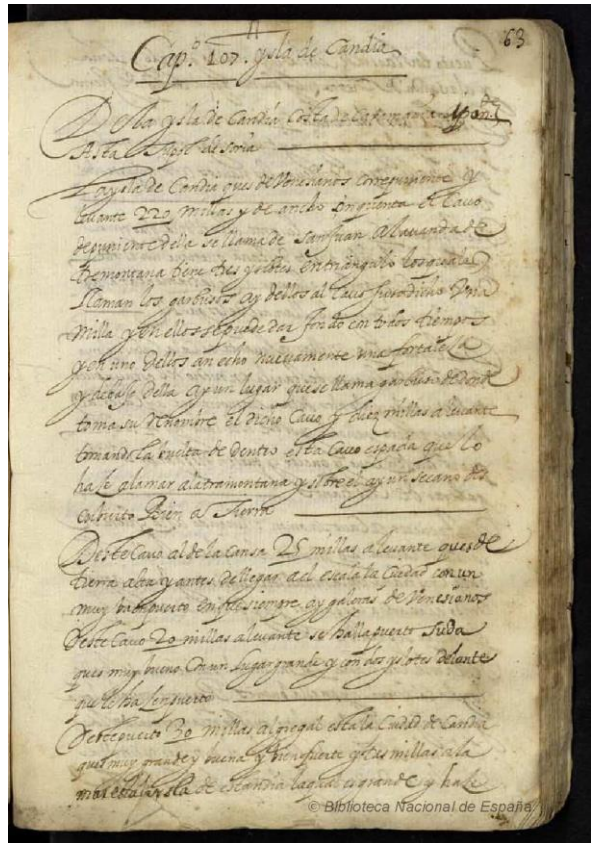 63
Capº. 107. ysla de Candia
De la ysla de Candia Costa de la
Asta
La ysla de Candia ques de Venesianos corre puniente y
levante 220 millas y de ancho sinquenta el Cavo
de puniente della se llama de San Juan A la vanda de
tremontana tiene tres yslotes en triangulo los quales
llaman los garbusos ay dellos al Cavo susodicho Una
milla y en ellos se puede dar fondo con todos tiempos
y en uno dellos an echo nuevamente una fortalesa
y debajo della ay un lugar que se llama garbuso de donde
toma su renombre el dicho Cavo y diez millas a levante
tomando la buelta de dentro esta Cavo espada que lo
hase a la mar a la tramontana y sobre el ay un secano
cubierto Bien a Tierra
Deste Cavo al de la Cansa 25 millas a levante ques de
tierra alta y antes de llegar a el esta la Ciudad con un
muy buen puerto en que siempre ay galeras de Venesianos
deste Cavo 20 millas a levante se halla puerto Suda
ques muy bueno Con un lugar grande y con dos yslotes delante
que le hasen puerto
Deste puerto 30 millas al gregal esta la Ciudad de Candia
ques muy grande y buena y bien fuerte y tres millas a la
mar esta la ysla de estandia la qual es grande y hase
© Biblioteca Nacional de España